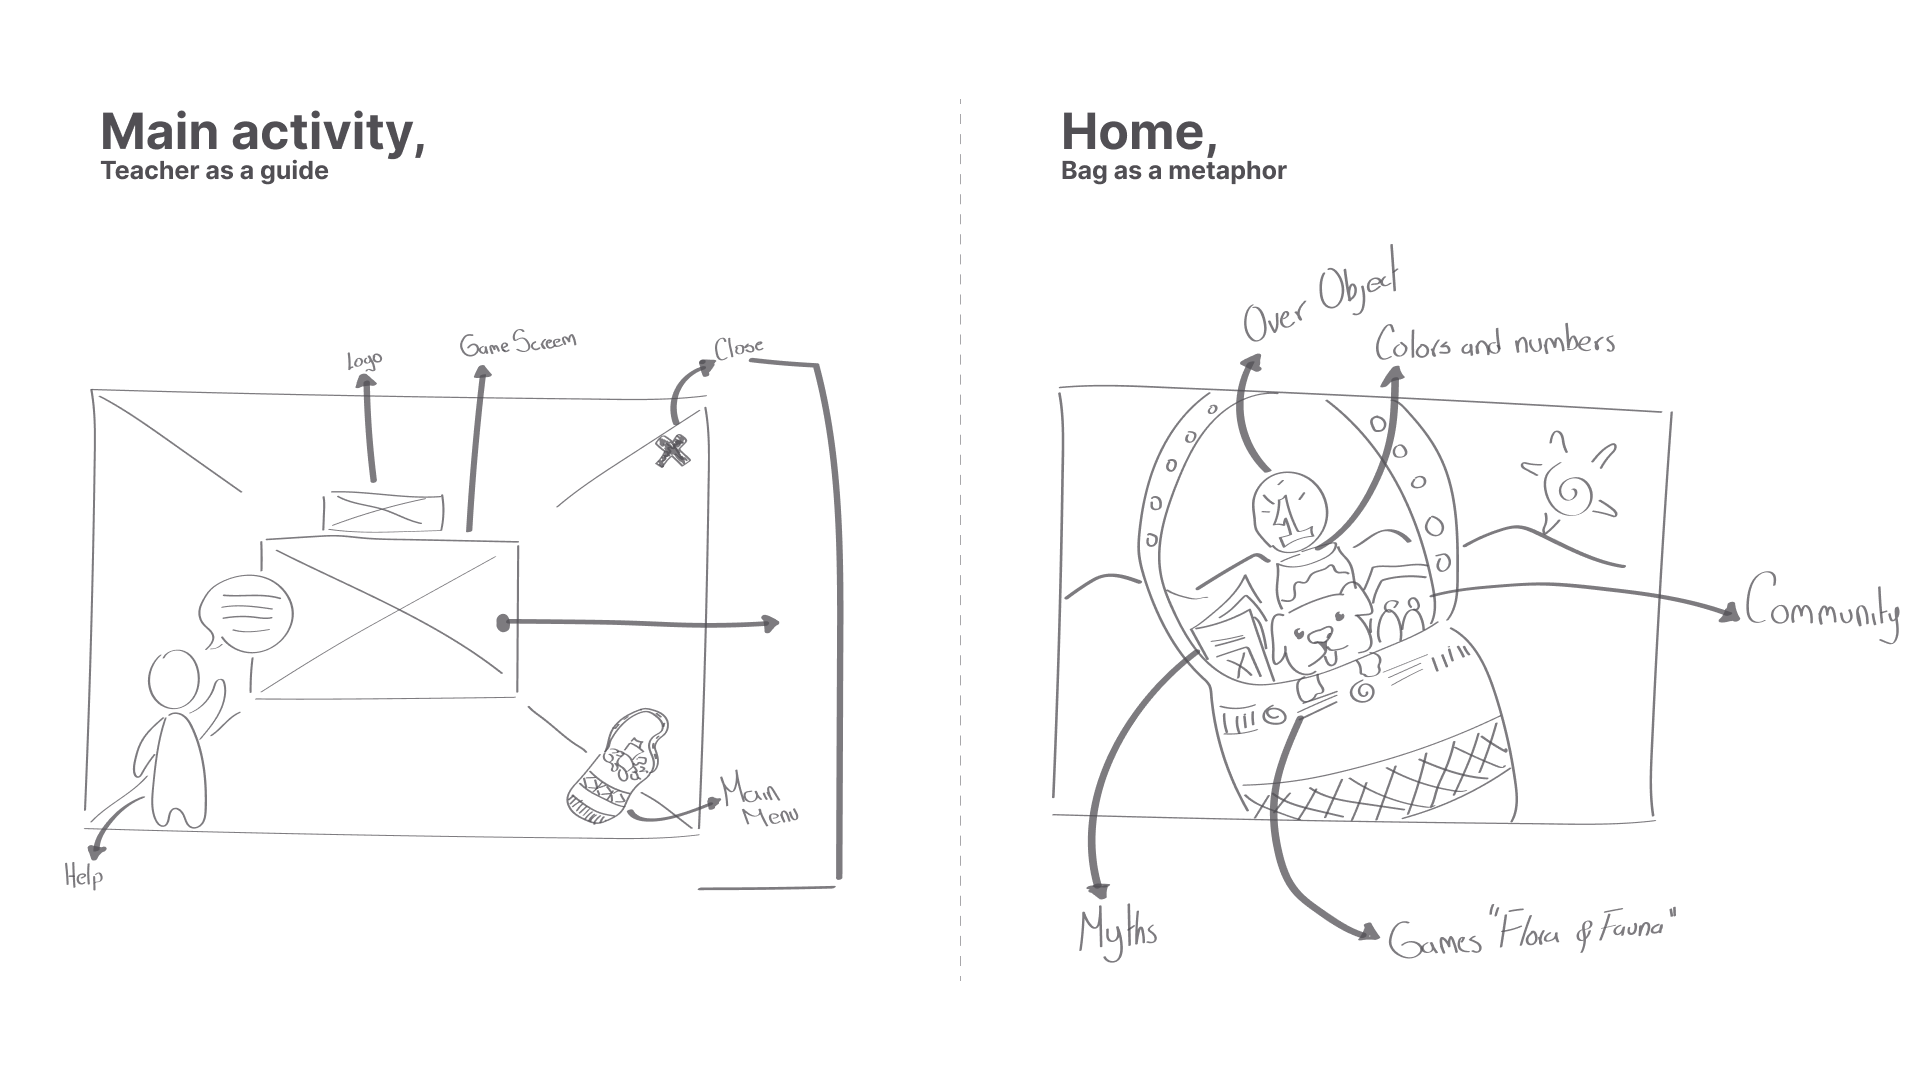 Main activity,
Teacher as a guide
Logo
Game Screem
Close
Main
Menu
Help
Home,
Bag as a metaphor
Over Object
Colors and numbers
1
Community
Myths
Games "Flora & Fauna"